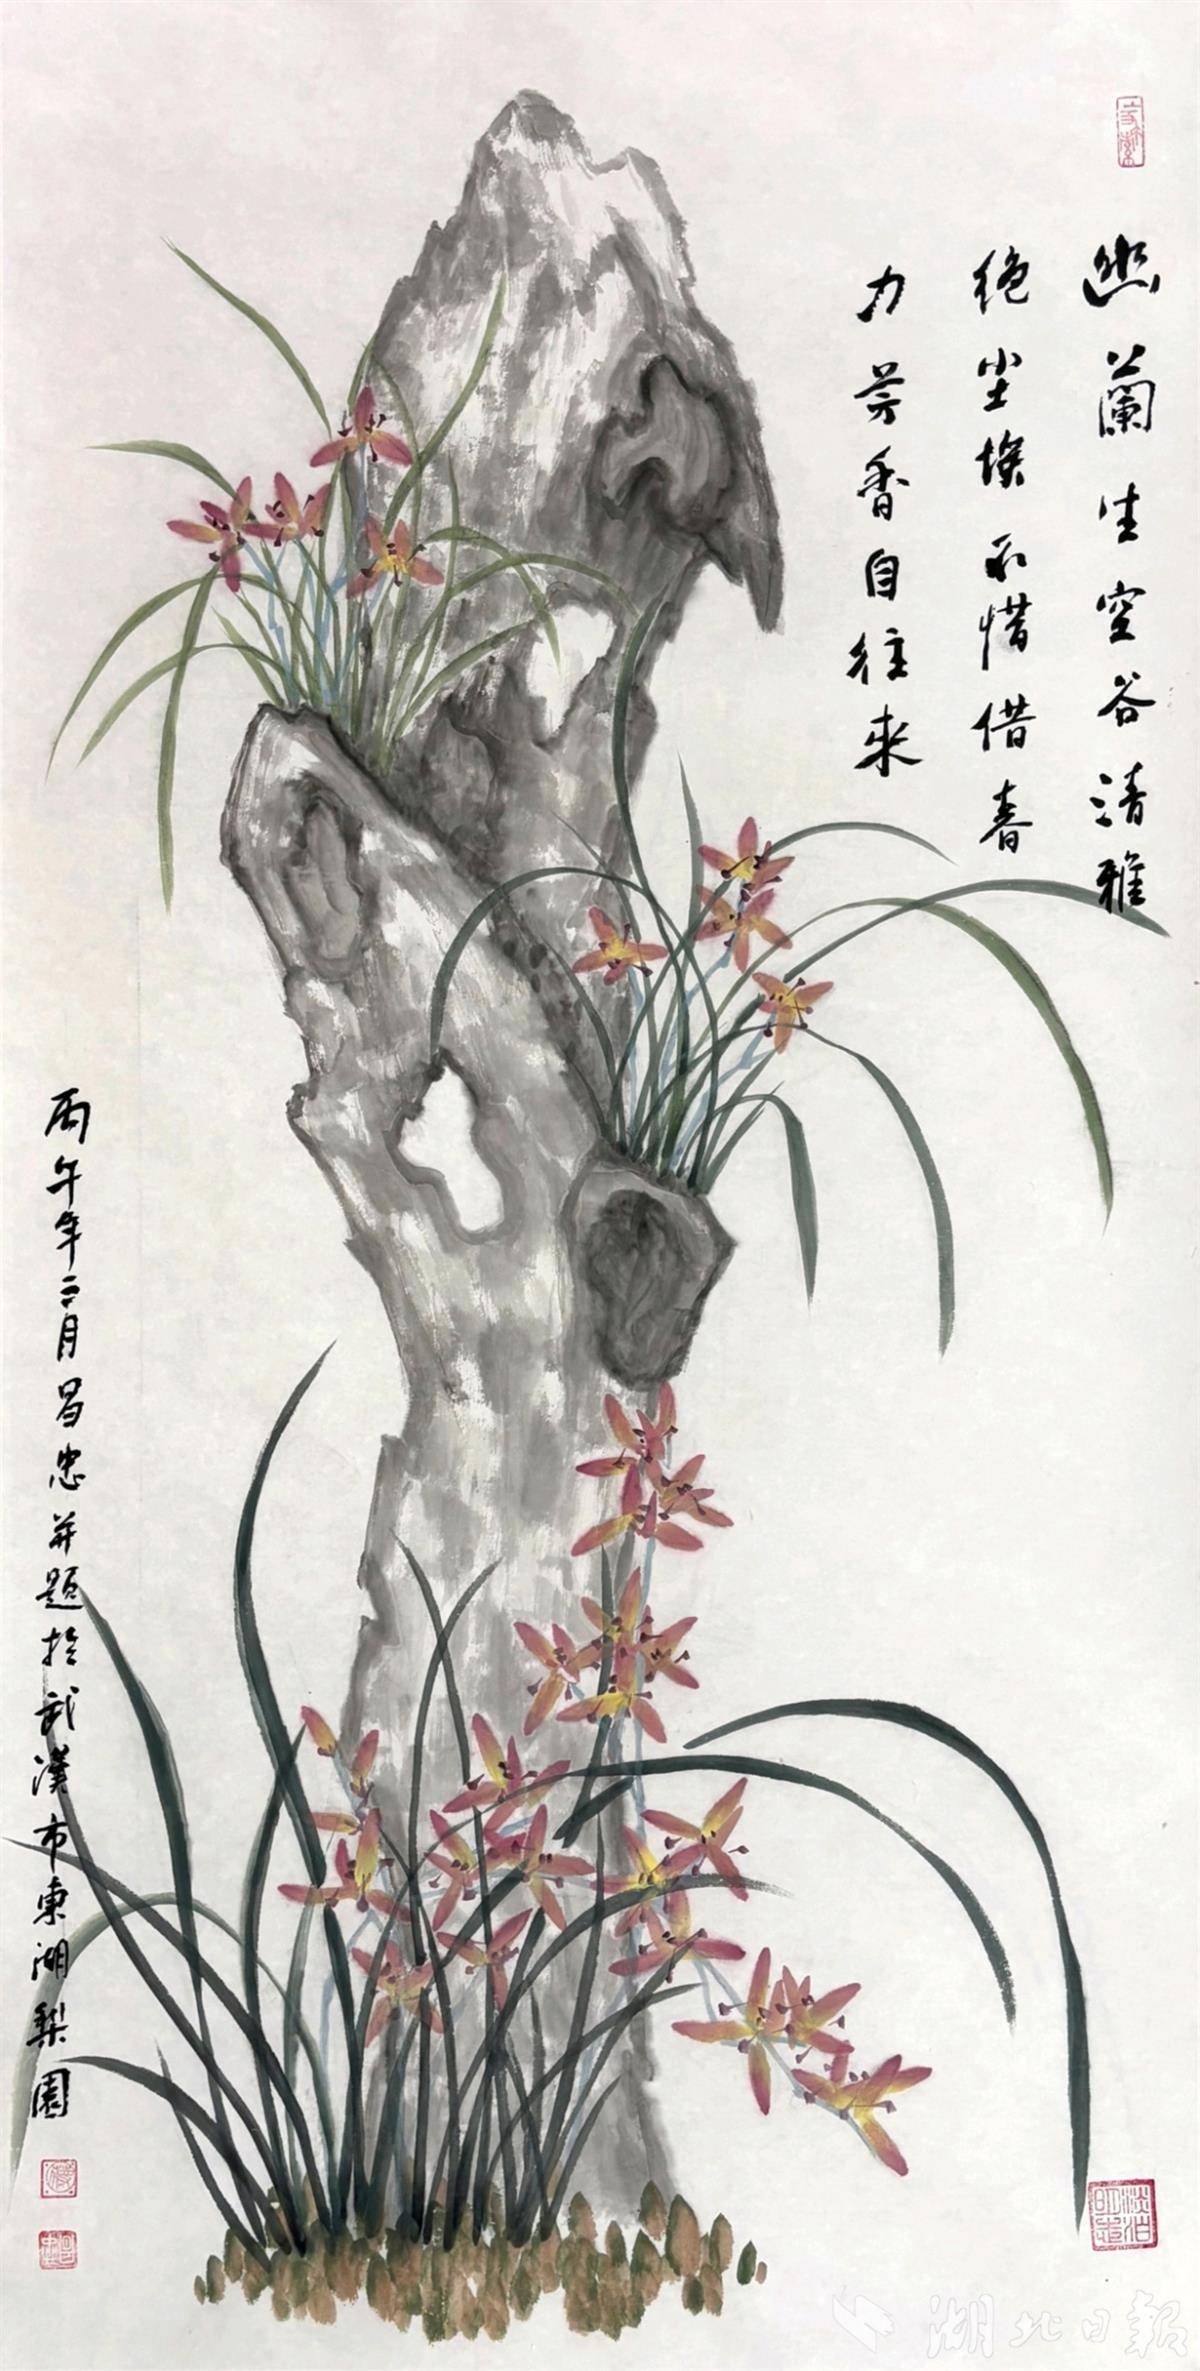 幽蘭生空谷清雅
绝尘埃不惜借春
力芳香自往来
丙午年二月昌忠并题於武漢市東湖梨園
淡泊明志
湖北日報